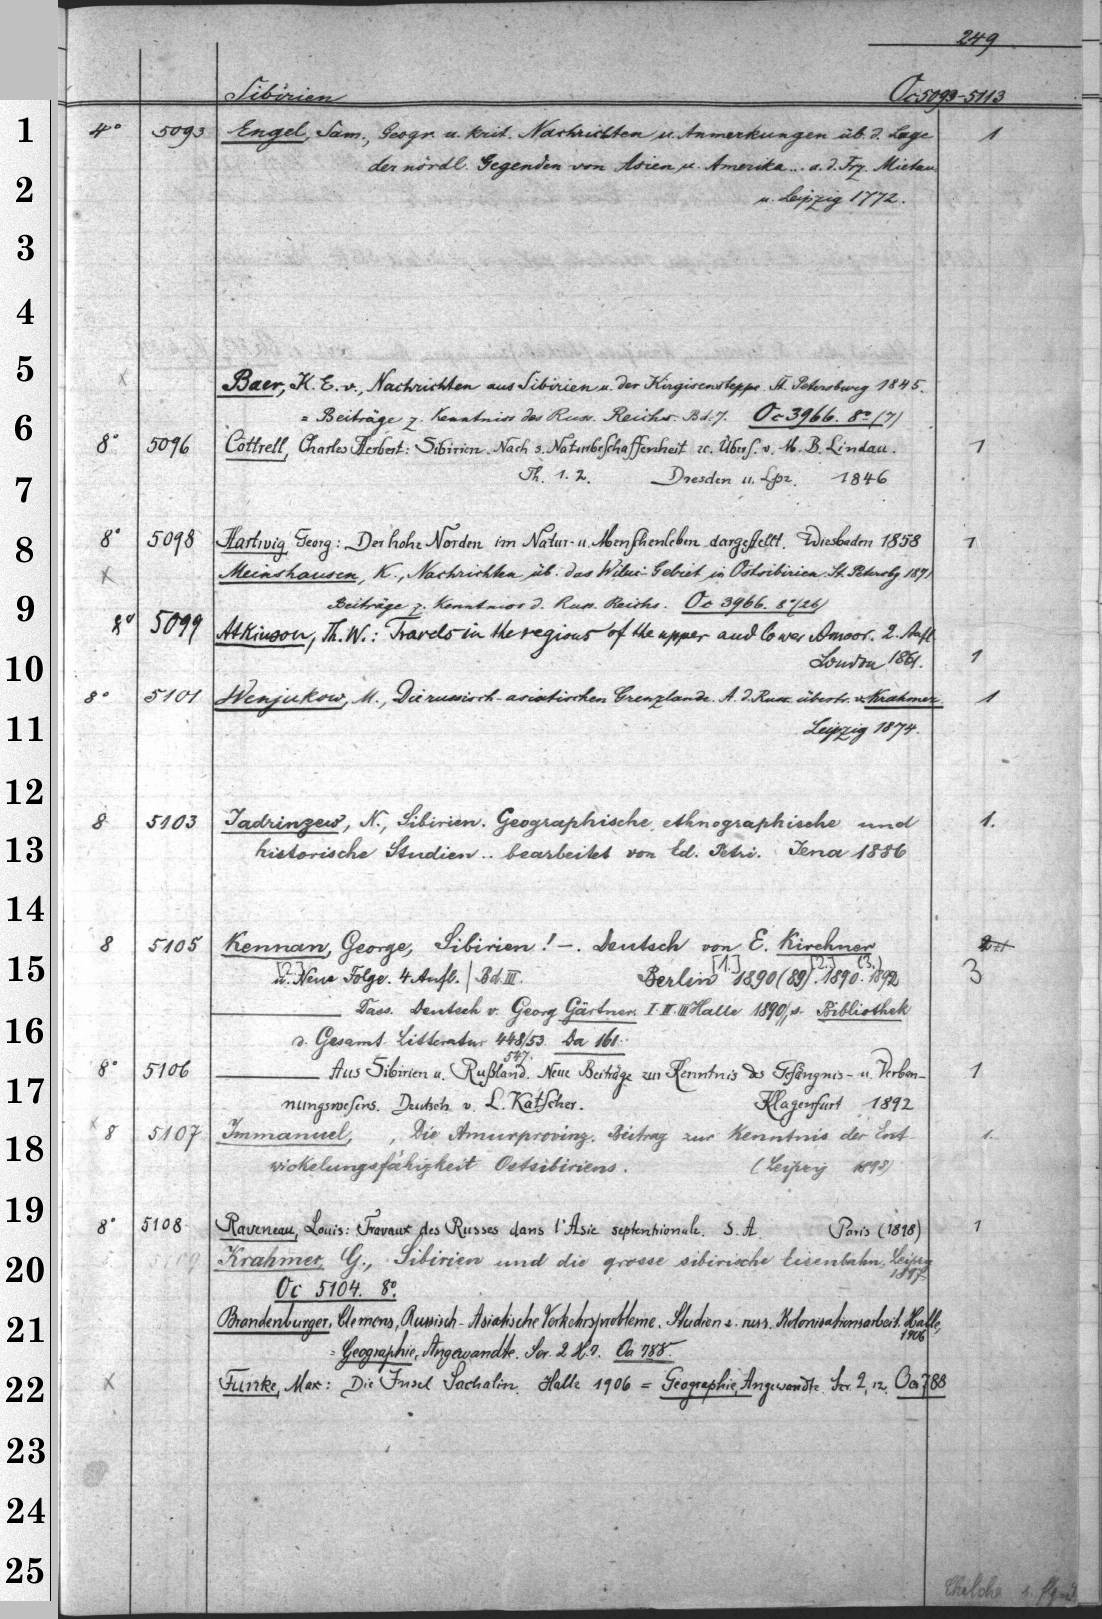 249
Sibirien Oc 5093-5113
1 4° 5093 Engel, Sam., Geogr. u. krit. Nachrichten u. Anmerkungen üb. d. Lage 1
der nördl. Gegenden von Asien u. Amerika... a. d. Frz. Mietau
2 u. Leipzig 1772.
3
4
5 x Baer, K. E. v., Nachrichten aus Sibirien u. der Kirgisensteppe. St. Petersburg 1845.
6 = Beiträge z. Kenntniss des Russ. Reichs. Bd. 7. Oc 3966. 8° (7)
8° 5096 Cottrell, Charles Herbert: Sibirien. Nach s. Naturbeschaffenheit zc. Übers. v. M. B. Lindau. 1
7 Th. 1. 2. Dresden u. Lpz. 1846
8 8° 5098 Hartwig, Georg: Der hohe Norden im Natur- u. Menschenleben dargestellt. Wiesbaden 1858 1
x Meinshausen, K., Nachrichten üb. das Wilui-Gebiet in Ostsibirien. St. Petersbg 1871
9 Beiträge z. Kenntniss d. Russ. Reichs. Oc 3966. 8° (26)
8° 5099 Atkinson, Th. W.: Travels in the regions of the upper and lower Amoor. 2. Aufl.
10 London 1861. 1
8° 5101 Wenjukow, M., Die russisch-asiatischen Grenzlande. A. d. Russ. übertr. v. Krahmer. 1
11 Leipzig 1874.
12
8 5103 Jadrinzew, N., Sibirien. Geographische, ethnographische und 1.
13 historische Studien.. bearbeitet von Ed. Petri. Jena 1886
14
8 5105 Kennan, George, Sibirien! -. Deutsch von E. Kirchner
15 [2.] u. Neue Folge. 4. Aufl. | Bd III. Berlin [1.] 1890 (89). [2.] 1890. (3.) 1892 3
Dass. Deutsch v. Georg Gärtner. I. II. III Halle 1890, s. Bibliothek
16 d. Gesamt Litteratur 448/53. 547. Da 161.
8° 5106 Aus Sibirien u. Rußland. Neue Beiträge zur Kenntnis des Gefängnis- u. Verban- 1
17 nungswesens. Deutsch v. L. Katscher. Klagenfurt 1892
x 8 5107 Immanuel, , Die Amurprovinz. Beitrag zur Kenntnis der Ent- 1.
18 wickelungsfähigkeit Ostsibiriens. (Leipzig 1898)
19
8° 5108 Raveneau, Louis: Travaux des Russes dans l'Asie septentrionale. S. A. Paris (1898) 1
5109 Krahmer, G., Sibirien und die grosse sibirische Eisenbahn, Leipzig
20 1897.
Oc 5104. 8°.
21 Brandenburger, Clemens, Russisch-Asiatische Verkehrsprobleme. Studien z. russ. Kolonisationsarbeit. Halle,
1906
= Geographie, Angewandte. Ser. 2 H. 7. Oa 788.
22 x Funke, Max: Die Insel Sachalin. Halle 1906 = Geographie, Angewandte. Ser. 2, 12. Oa 788
23
24
25